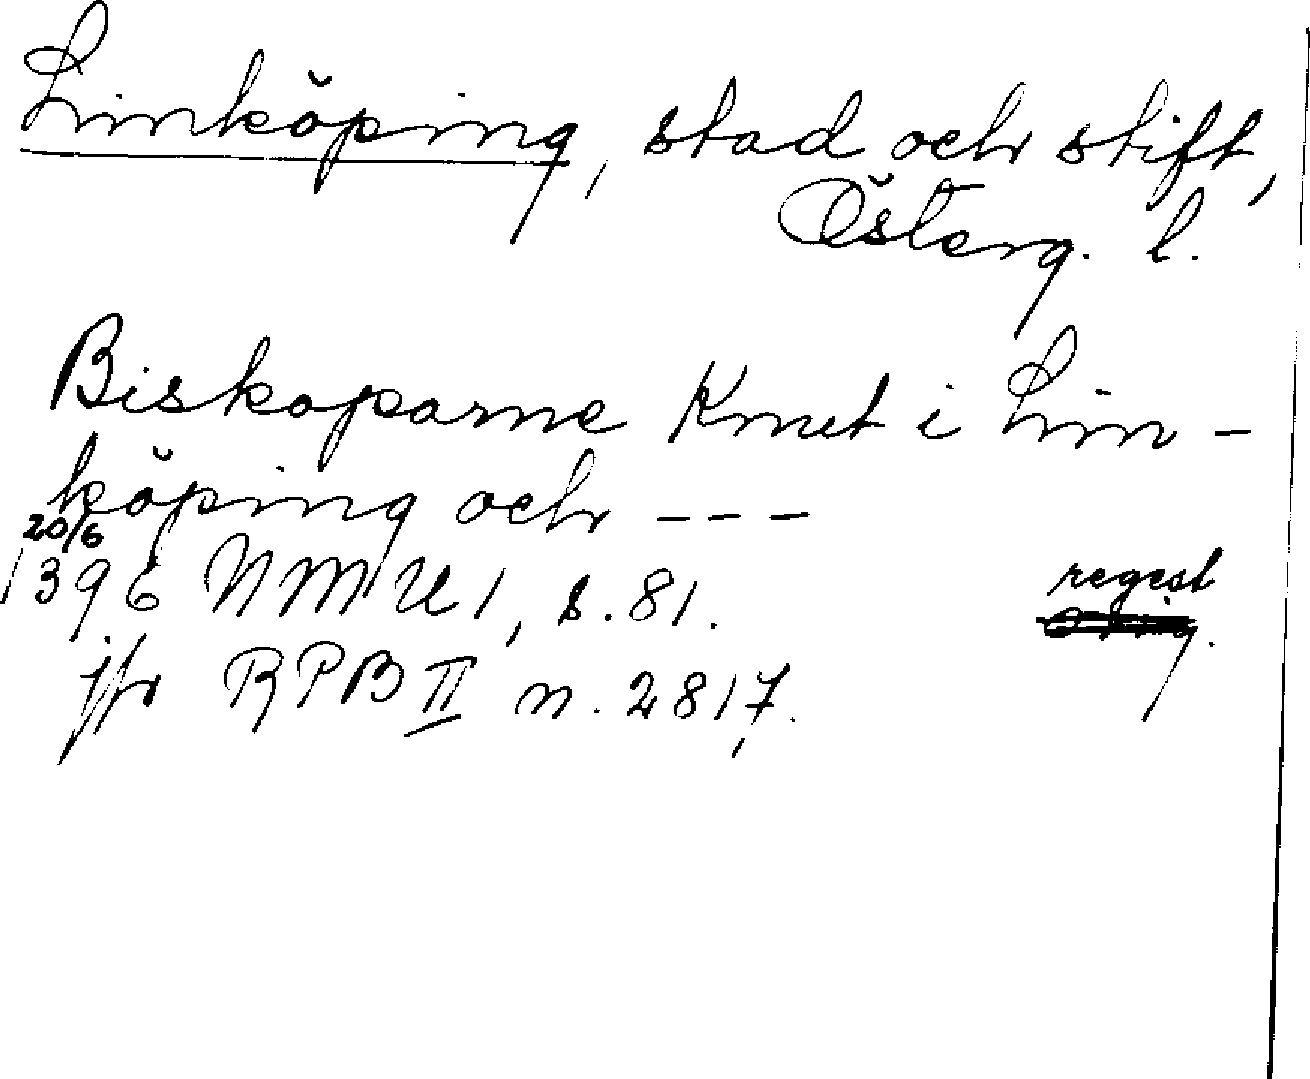 Linköping, stad och stift,
Österg. l.
Biskoparne Knut i Lin-
köping och ---
20/6
1396 NMU 1, s. 81. regest
orig.
jfr RPB II n. 2817.